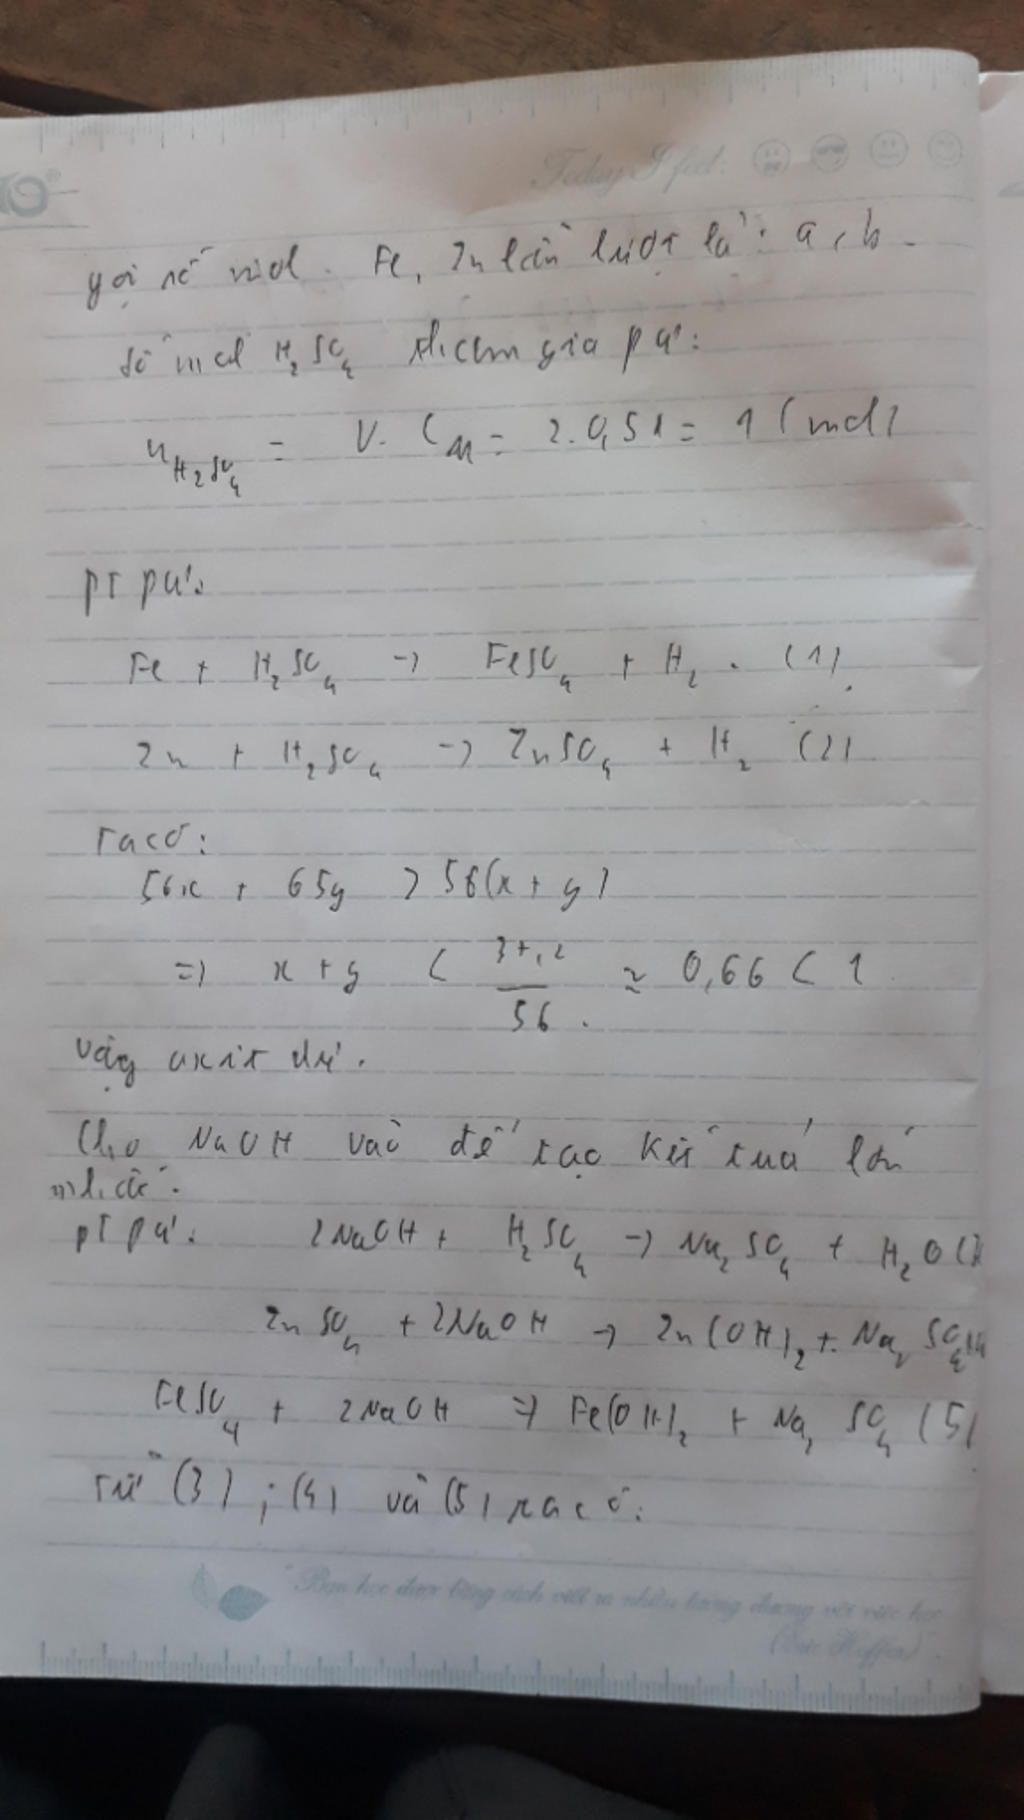 Today I feel:
gọi số mol. Fe, Zn lần lượt là: a, b.
Số mol H2SO4 tham gia pứ:
nH2SO4 = V. CM = 2.0,51 = 1 (mol)
PT pứ:
Fe + H2SO4 -> FeSO4 + H2. (1).
Zn + H2SO4 -> ZnSO4 + H2 (2)
Ta có:
56x + 65y > 56(x + y)
=> x + y < 37,2/56 ≈ 0,66 < 1
Vậy axit dư.
Cho NaOH vào để tạo kết tủa lớn
nhất.
PT pứ. 2NaOH + H2SO4 -> Na2SO4 + H2O (3
ZnSO4 + 2NaOH -> Zn(OH)2 + Na2SO4 (4
FeSO4 + 2NaOH => Fe(OH)2 + Na2SO4 (5)
Từ (3); (4) và (5) ta có:
"Bạn học được bằng cách viết ra nhiều tương đương với việc học
(Eric Hoffer)